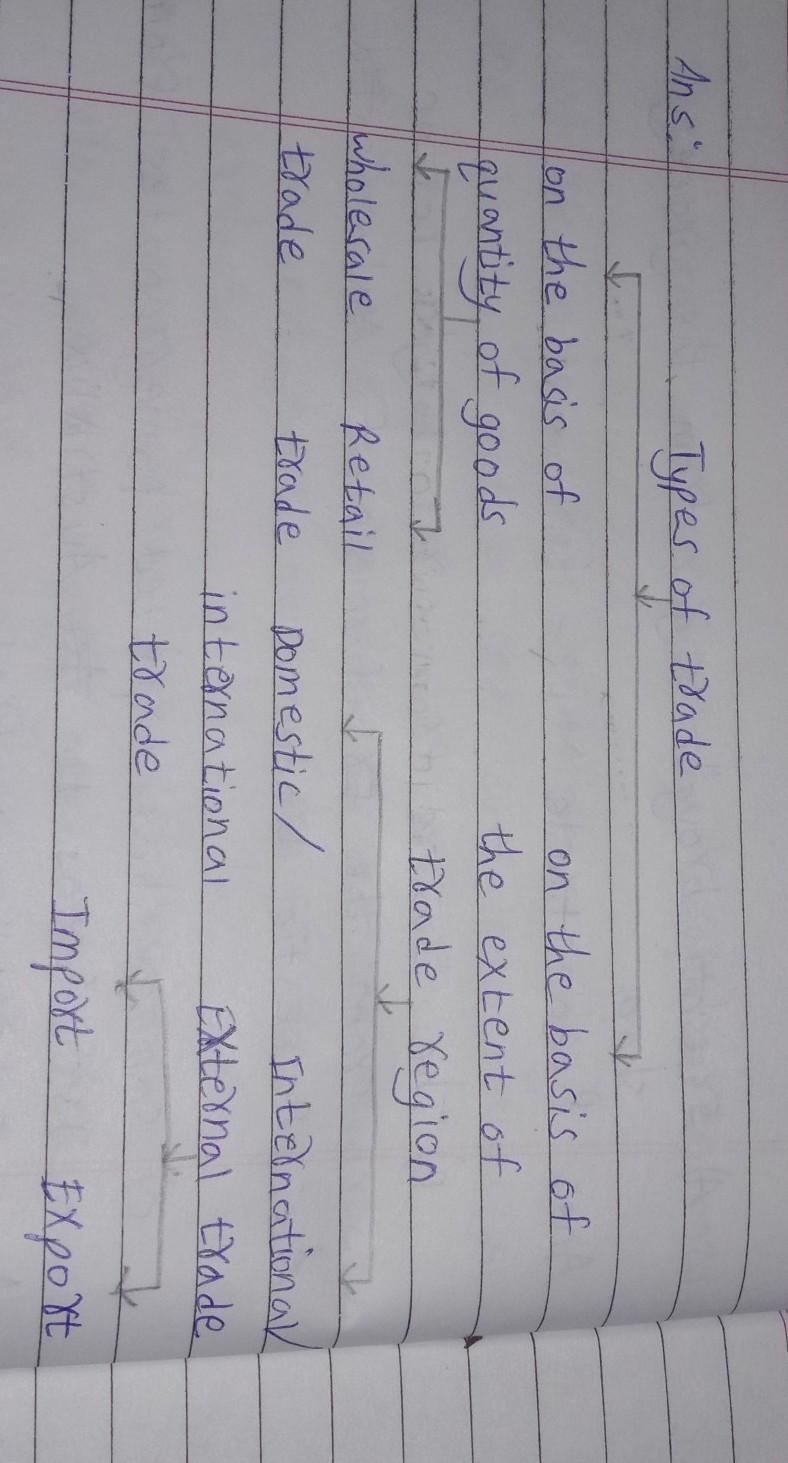 Ans:
Types of trade
on the basis of on the basis of
quantity of goods the extent of
trade region
wholesale Retail
trade trade Domestic/ International/
international External trade
trade
Import Export